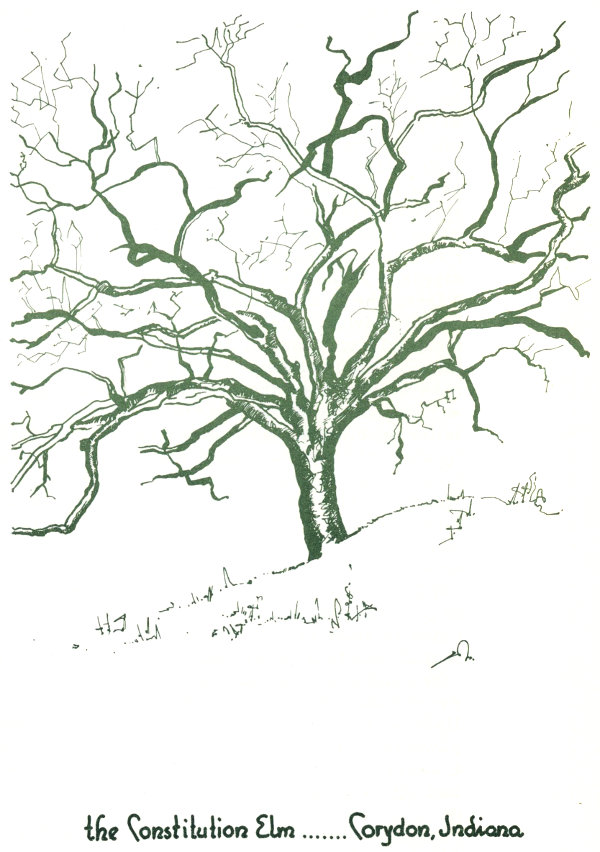 the Constitution Elm ....... Corydon, Indiana